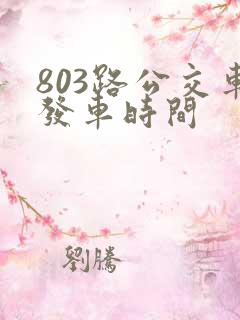 803路公交車
發車時間
劉騰